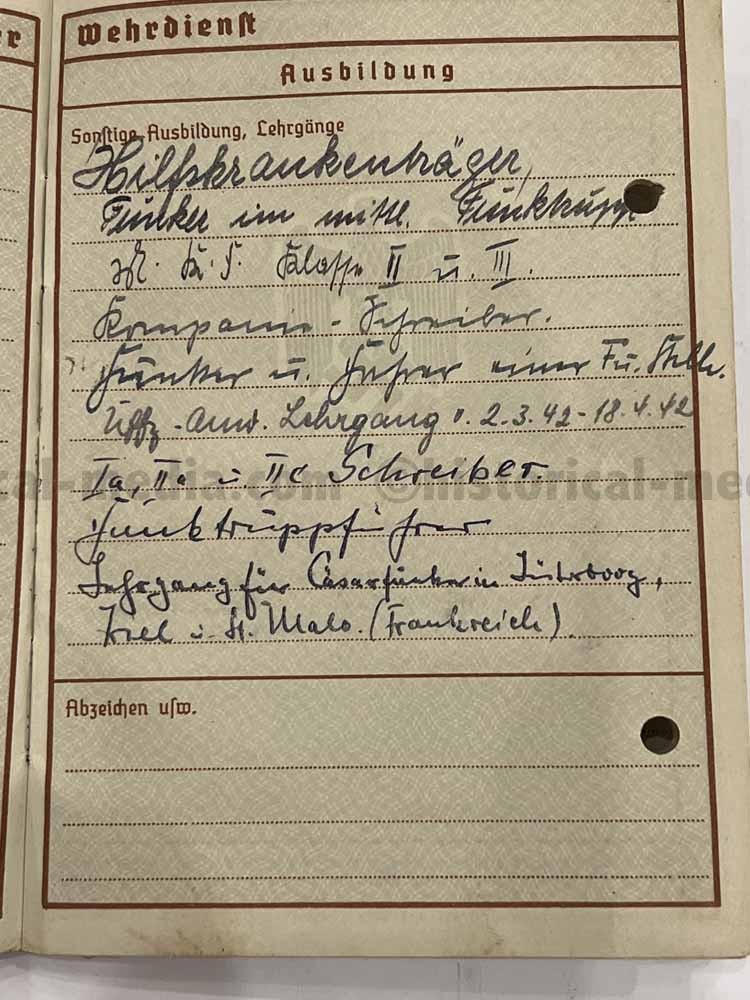 er
Wehrdienst
Ausbildung
Sonstige Ausbildung, Lehrgänge
Hilfskrankenträger,
Funker im mittl. Funktrupp
K. S. Klasse II u. III.
Kompanie-Schreiber.
Funker u. Führer einer Fu. Stelle.
Uffz.-Anw. Lehrgang v. 2.3.42-18.4.42
Ia, IIa u IIc Schreiber.
Funktruppführer
Lehrgang für Cäsarfunker in Jüterboog,
Kiel u. St. Malo. (Frankreich).
Abzeichen usw.
cal-media.com ©historical-med